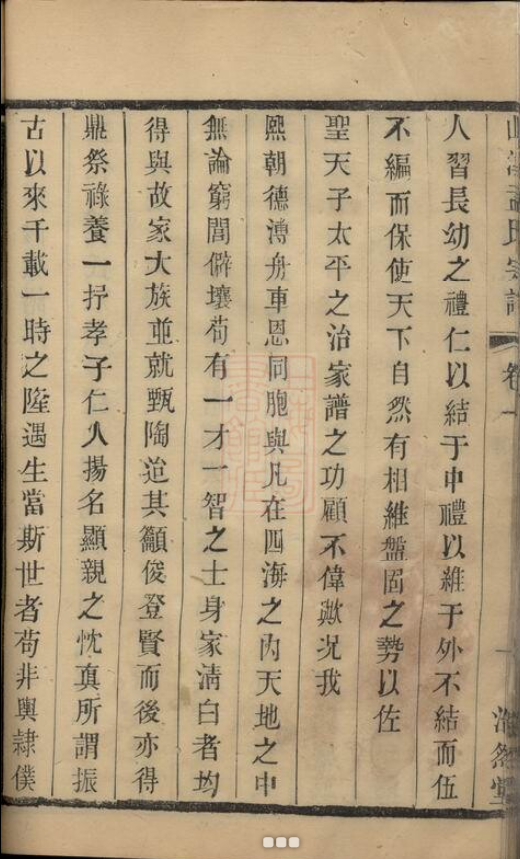 孟氏宗譜
卷一
浩然堂
人習長幼之禮仁以結于中禮以維于外不結而伍
不編而保使天下自然有相維盤固之勢以佐
聖天子太平之治家譜之功顧不偉歟况我
熙朝德溥舟車恩同胞與凡在四海之內天地之中
無論窮閭僻壤苟有一才一智之士身家淸白者均
得與故家大族並就甄陶迨其籲俊登賢而後亦得
鼎祭祿養一抒孝子仁人揚名顯親之忱真所謂振
古以來千載一時之隆遇生當斯世者苟非輿隸僕